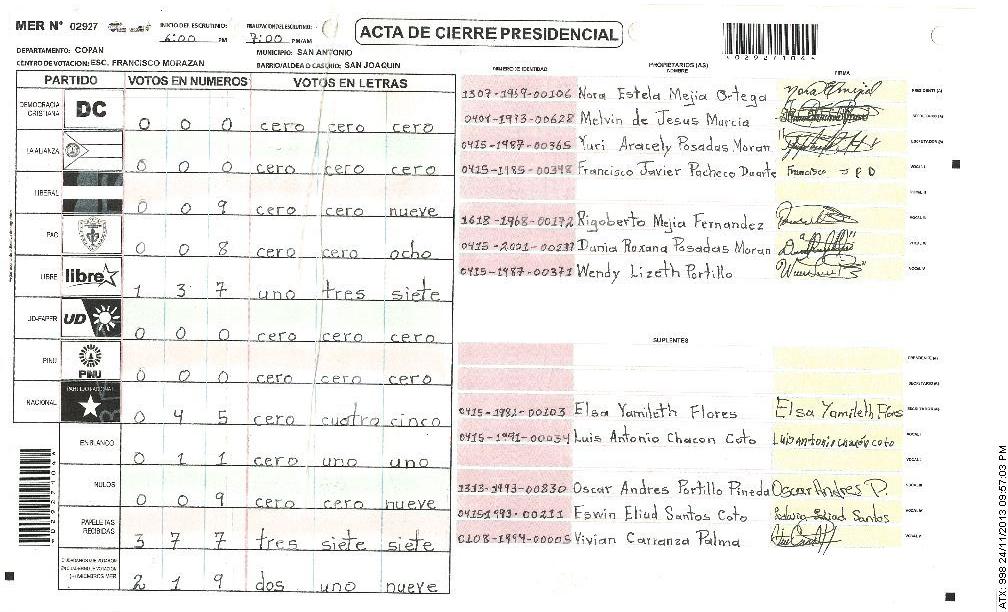 MER N° 02927
INICIO DEL ESCRUTINIO: 6:00 PM
FINALIZACION DEL ESCRUTINIO: 7:00 PM/AM
ACTA DE CIERRE PRESIDENCIAL
DEPARTAMENTO: COPAN
MUNICIPIO: SAN ANTONIO
CENTRO DE VOTACION: ESC. FRANCISCO MORAZAN
BARRIO/ALDEA O CASERIO: SAN JOAQUIN
PARTIDO VOTOS EN NUMEROS VOTOS EN LETRAS
DEMOCRACIA CRISTIANA DC 0 0 0 cero cero cero
LA ALIANZA 0 0 0 cero cero cero
LIBERAL 0 0 9 cero cero nueve
PAC 0 0 8 cero cero ocho
LIBRE libre 1 3 7 uno tres siete
UD-FAPER UD 0 0 0 cero cero cero
PINU PINU 0 0 0 cero cero cero
NACIONAL PARTIDO NACIONAL 0 4 5 cero cuatro cinco
EN BLANCO 0 1 1 cero uno uno
NULOS 0 0 9 cero cero nueve
PAPELETAS RECIBIDAS 3 7 7 tres siete siete
(+) MIEMBROS MER 2 1 9 dos uno nueve
NUMERO DE IDENTIDAD PROPIETARIOS (AS) NOMBRE FIRMA
Nora Estela Mejia Ortega PRESIDENTE(A)
0401-1973-00628 Melvin de Jesus Murcia SECRETARIO(A)
0415-1987-00365 Yuri Aracely Posadas Moran ESCRUTADOR(A)
0415-1985-00398 Francisco Javier Pacheco Duarte Francisco J P D VOCAL I
VOCAL II
1618-1968-00172 Rigoberto Mejia Fernandez VOCAL III
0415-2001-00237 Dunia Roxana Posadas Moran VOCAL IV
0415-1987-00371 Wendy Lizeth Portillo VOCAL V
SUPLENTES
PRESIDENTE(A)
SECRETARIO(A)
0415-1982-00103 Elsa Yamileth Flores Elsa Yamileth Flores ESCRUTADOR(A)
0415-1991-00034 Luis Antonio Chacon Coto Luis Antonio Chacón Coto VOCAL I
VOCAL II
1313-1993-00830 Oscar Andres Portillo Pineda Oscar Andres P. VOCAL III
04151993-00211 Eswin Eliud Santos Coto VOCAL IV
0108-1994-00005 Vivian Carranza Palma VOCAL V
ATX: 998 24/11/2013 09:57:03 PM